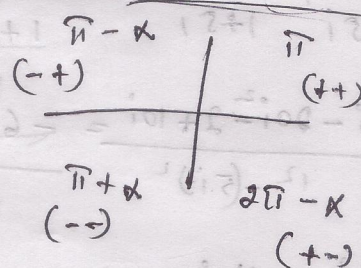 π - α
(- +)
π
(+ +)
π + α
(- -)
2π - α
(+ -)